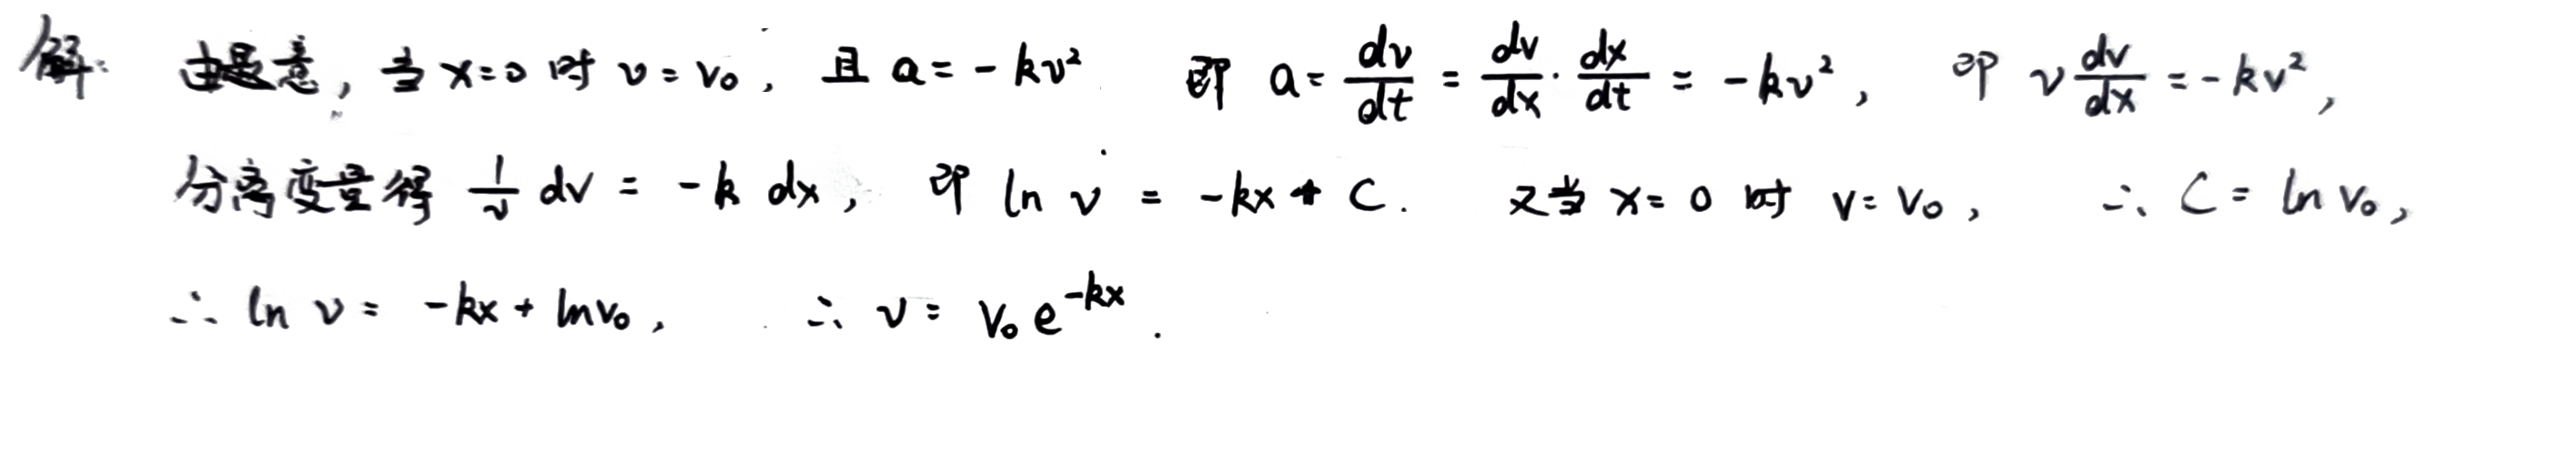 解: 由题意, 当 x=0 时 v=v₀, 且 a=-kv² 即 a=dv/dt=dv/dx·dx/dt=-kv², 即 v dv/dx=-kv²,
分离变量得 1/v dv = -k dx, 即 ln v = -kx + C. 又当 x=0 时 v=v₀, ∴ C=ln v₀,
∴ ln v= -kx+lnv₀, ∴ v= v₀e^(-kx).